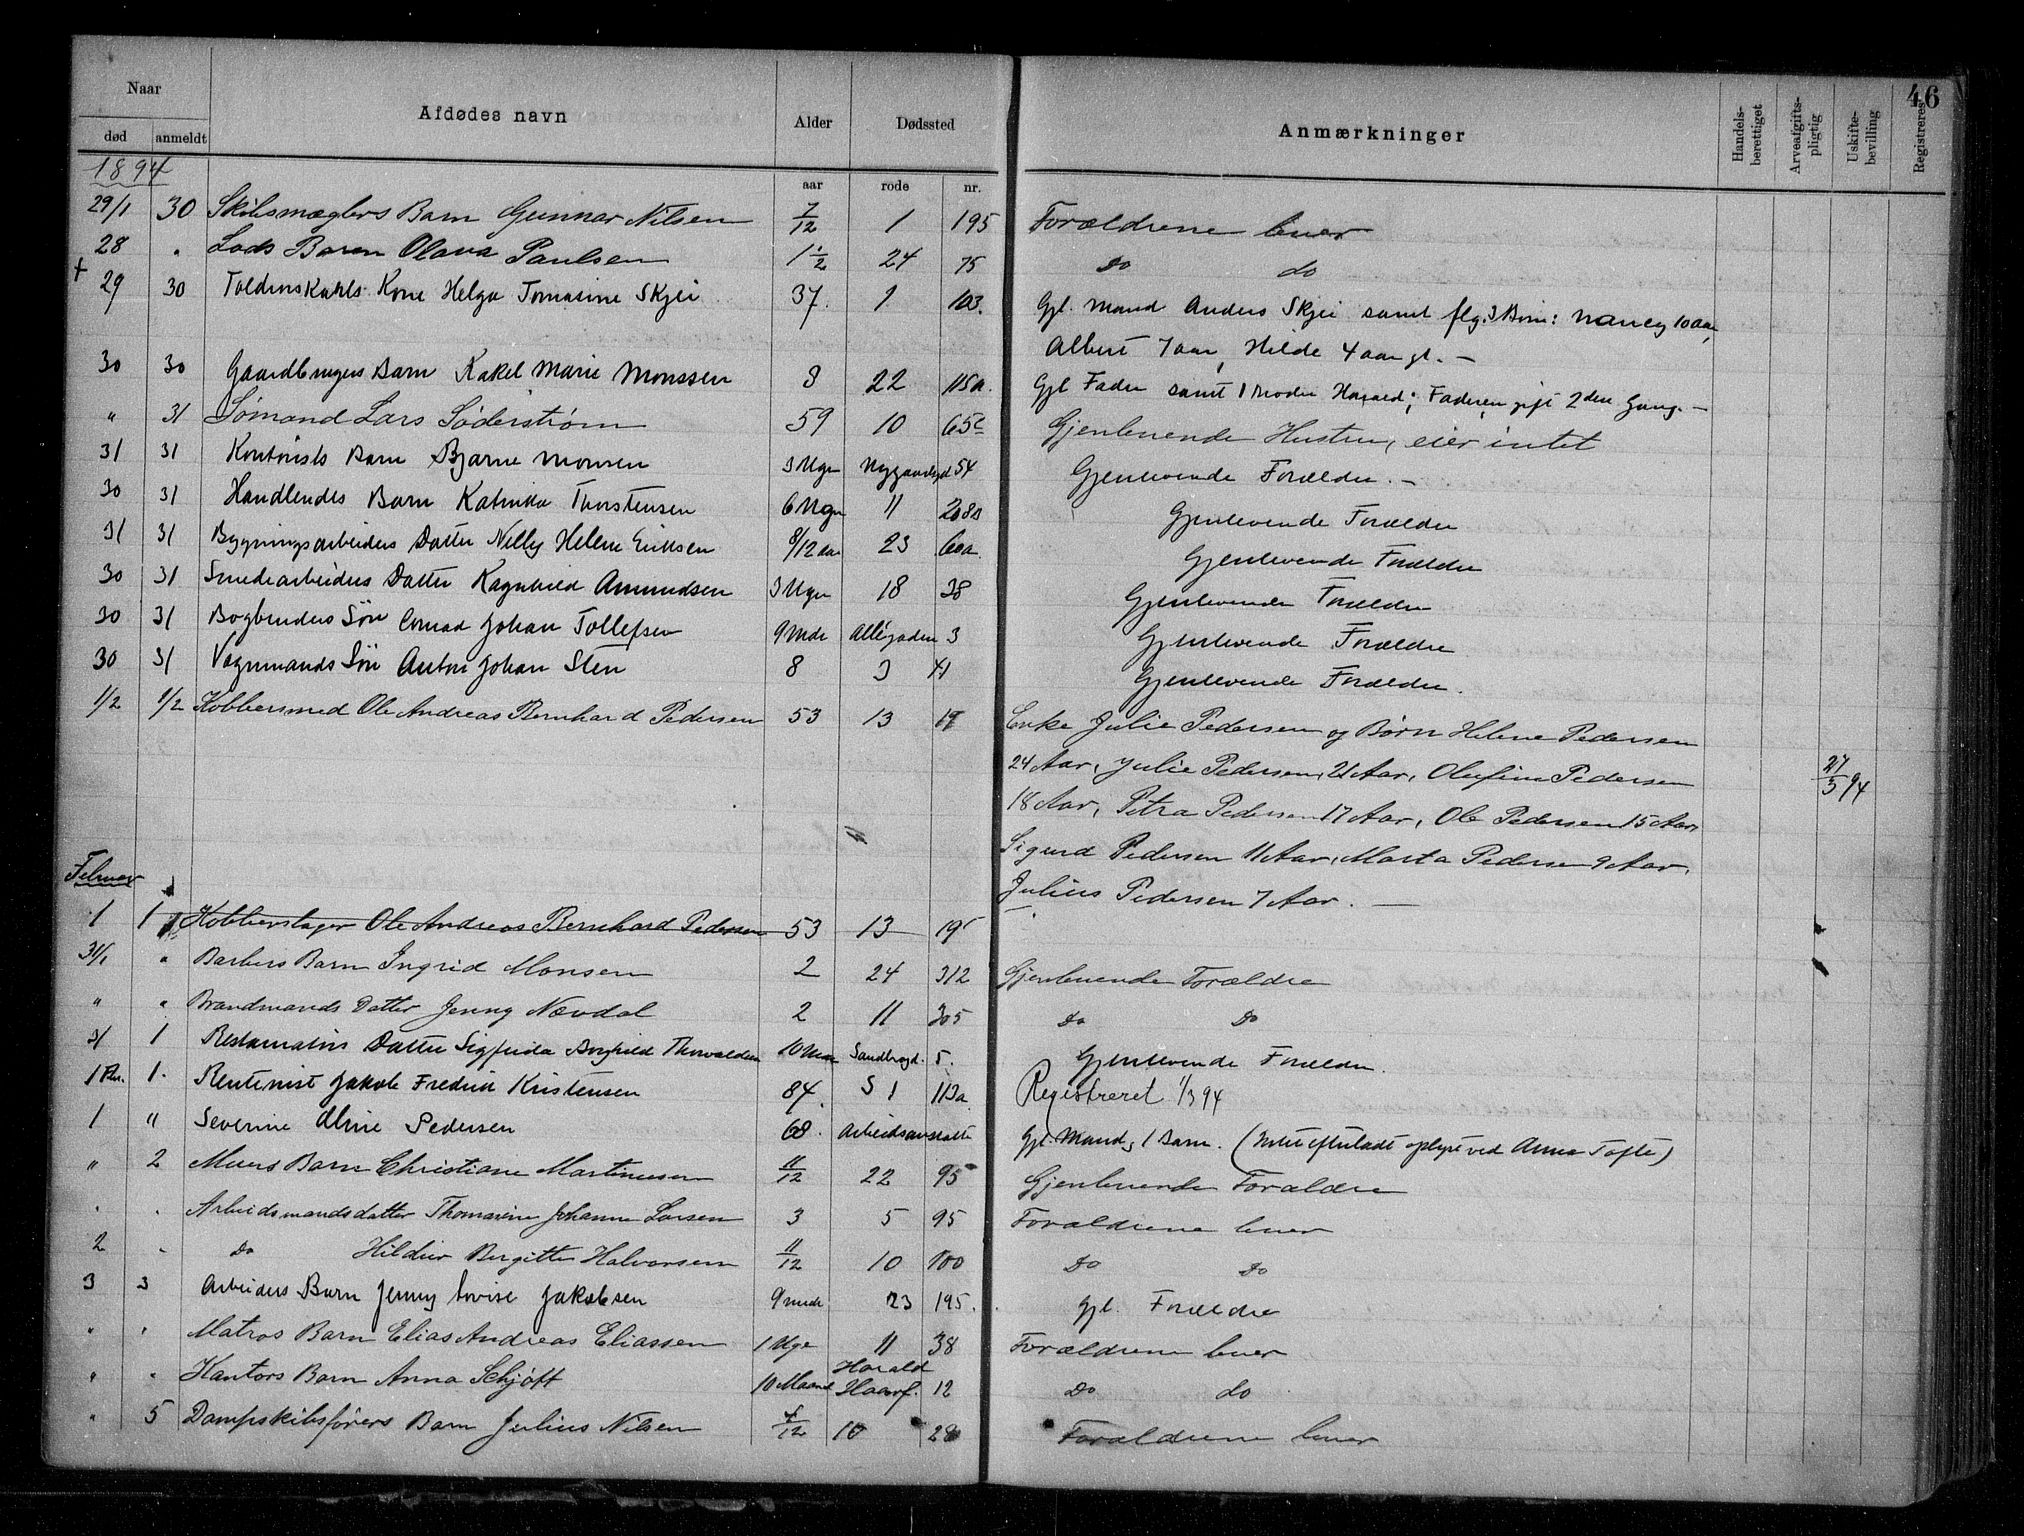 46
Naar
Afdødes navn
Alder
Dødssted
Anmærkninger
Handels-berettiget
Arveafgifts-pligtig
Uskifte-bevilling
Registreres
død anmeldt
aar rode nr.
1894
29/1 30 Skibsmæglers Barn Gunnar Nilsen 7/12 1 195 Forældrene lever
28 " Lods Baren Olava Paulsen 1 1/2 24 75 Do do
+ 29 30 Toldinskahls Kone Helga Tomasine Skjei 37. 1 103. Gjl. Mand Anders Skjei samt flg. 3 Børn: Nancy 10 aar,
Albert 7 aar, Hilde 4 aar gl. –
30 30 Gaardbrugers Barn Rakel Marie Monssen 3 22 115a. Gjl Fader samt 1 broder Harald; Faderen gift 2den Gang. –
" 31 Sømand Lars Søderstrøm 59 10 65c Gjenlevende Hustru, eier intet
31 31 Kontorists Barn Bjarne Monsen 3 Ugr Nygaardsgd 54 Gjenlevende Forældre. –
30 31 Handlendes Barn Katinka Thorstensen 6 Ugr 11 208a Gjenlevende Forældre
31 31 Bygningsarbeiders Datter Nelly Helene Eriksen 8/12 aar 23 60a. Gjenlevende Forældre
30 31 Smedearbeiders Datter Ragnhild Amundsen 3 Ugr 18 38 Gjenlevende Forældre
30 31 Bogbinders Søn Conrad Johan Tollefsen 9 Mdr Allégaden 3 Gjenlevende Forældre.
30 31 Vognmands Søn Anton Johan Sten 8 3 41 Gjenlevende Forældre.
1/2 1/2 Kobbersmed Ole Andreas Bernhard Pedersen 53 13 19 Enke Julie Pedersen og Børn Helene Pedersen
24 Aar, Julie Pedersen, 21 Aar, Olufine Pedersen 27/5 94
18 Aar, Petra Pedersen 17 Aar, Ole Pedersen 15 Aar,
Sigurd Pedersen 11 Aar, Marta Pedersen 9 Aar,
Julius Pedersen 7 Aar. –
Februar
1 1 Kobberslager Ole Andreas Bernhard Pedersen 53 13 19
31/1 " Barbers Barn Ingrid Monsen 2 24 312 Gjenlevende Forældre
" " Brandmands Datter Jenny Nævdal 2 11 305 Do Do
31 1 Restauratørs Datter Sigfrida Ingfrid Thorvaldsen 10 Mdr Sandbrogd. 5. Gjenlevende Forældre.
1 Fbr. 1. Rentenist Jakob Fredrik Kristensen 84. S 1 113a Registreret 1/3 94
1 " Severine Oline Pedersen 68. Arbeidsanstalten Gjl. Mand, 1 Barn. (Intet efterladt oplyst ved Anna Tofte)
" 2 Murers Barn Christiane Martinusen 11/12 22 95 Gjenlevende Forældre
" " Arbeidsmandsdatter Thomasine Johanne Larsen 3 5 95 Forældrene lever
2 " Do Hildur Bergitte Halvorsen 11/12 10 100 Do Do
3 3 Arbeiders Barn Jenny Lovise Jakobsen 9 mdr 23 195. Gjl. Forældre
" " Matros Barn Elias Andreas Eliassen 1 Uge 11 38 Forældrene lever
" " Kantors Barn Anna Schjøtt 10 Maand Harald Haarf. 12 Do do
" 5 Dampskibsførers Barn Julius Nilsen 5/12 10 28 Forældrene lever